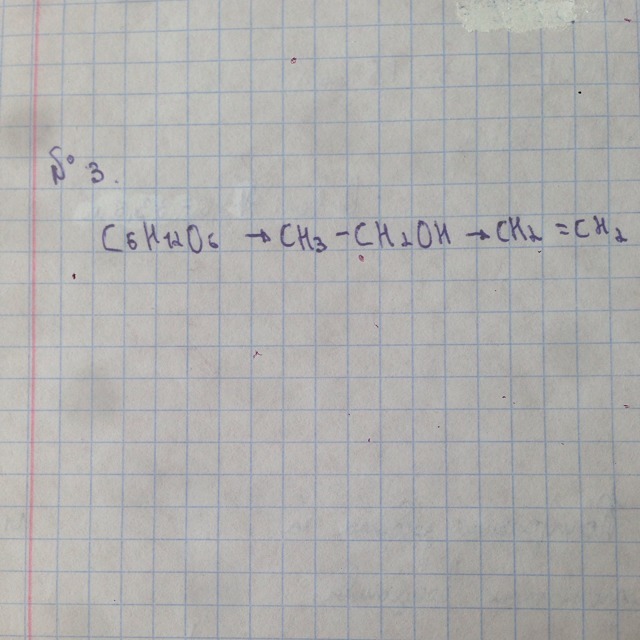 № 3.
C6H12O6 → CH3 - CH2OH → CH2 = CH2